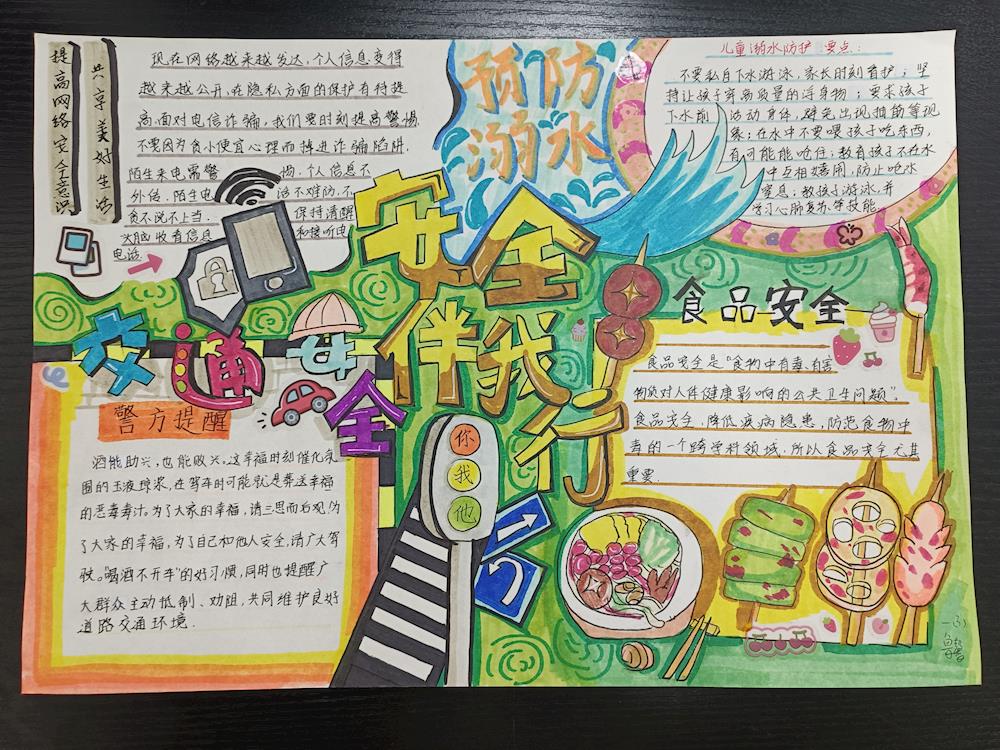 提高网络安全意识
共享美好生活
现在网络越来越发达,个人信息变得
越来越公开,在隐私方面的保护有待提
高面对电信诈骗,我们要时刻提高警惕
不要因为贪小便宜心理而掉进诈骗陷阱.
陌生来电需警惕.个人信息不
外传.陌生电话不难防.不
贪不说不上当.保持清醒
头脑收看信息和接听电
电话.
预防
溺水
儿童溺水防护 要点:
不要私自下水游泳,家长时刻看护;坚
持让孩子穿高质量的浮身物;要求孩子
下水前活动身体,避免出现抽筋等现
象;在水中不要喂孩子吃东西,
有可能能呛住;教育孩子不在水
中互相嬉闹,防止呛水
窒息;教孩子游泳.并
学习心肺复苏等技能.
安全
伴我
行
交通安
全
警方提醒
酒能助兴,也能败兴.这幸福时刻催化氛
围的玉液琼浆,在驾车时可能就是葬送幸福
的恶毒毒汁.为了大家的幸福,请三思而后观为
了大家的幸福,为了自己和他人安全,请广大驾
驶。"喝酒不开车"的好习惯,同时也提醒广
大群众主动抵制、劝阻,共同维护良好
道路交通环境.
你
我
他
食品安全
食品安全是"食物中有毒、有害
物质对人体健康影响的公共卫生问题".
食品安全,降低疾病隐患,防范食物中
毒的一个跨学科领域.所以食品安全尤其
重要.
一(3)